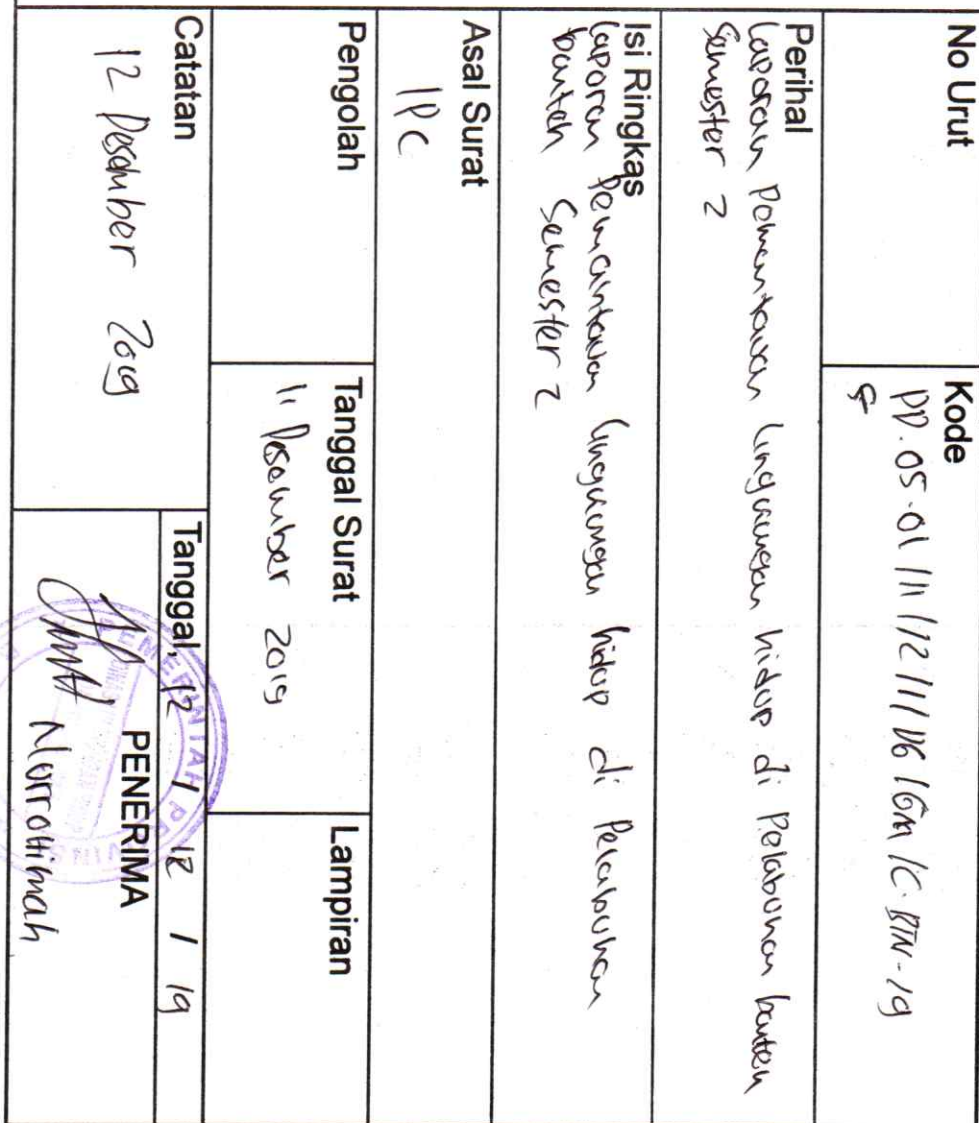 No Urut
Kode
PP.05.01/11/12/1/1/D6/GM/C.BTN-19
Perihal
Laporan Pemantauan lingkungan hidup di Pelabuhan banten
Semester 2
Isi Ringkas
Laporan Pemantauan lingkungan hidup di Pelabuhan
banten Semester 2
Asal Surat
IPC
Pengolah
Tanggal Surat
11 Desember 2019
Lampiran
Catatan
12 Desember 2019
Tanggal, 12 / 12 / 19
PENERIMA
Nurrohimah
PEMERINTAH